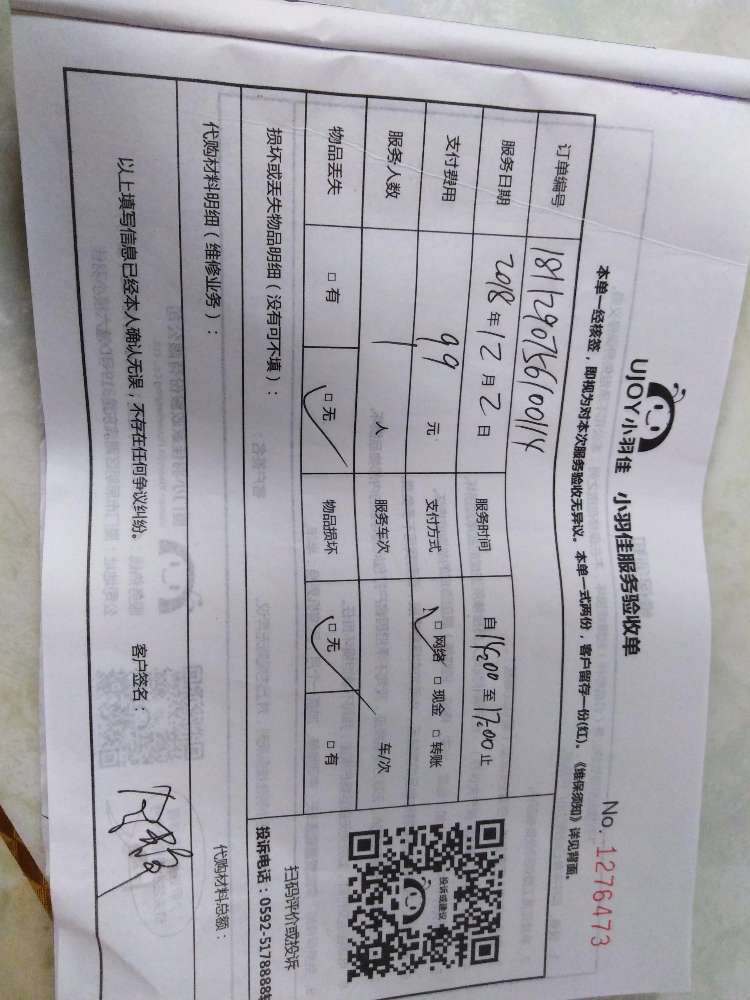 UJOY小羽佳 小羽佳服务验收单
No. 1276473
本单一经核签，即视为对本次服务验收无异议。本单一式两份，客户留存一份(红)。《维保须知》详见背面。
订单编号 1811290756100114
服务日期 2018年12月2日 服务时间 自14:00至17:00止
支付费用 99元 支付方式 □网络 □现金 □转账
服务人数 1人 服务车次 车/次
物品丢失 □有 □无 物品损坏 □无 □有
投诉或建议
损坏或丢失物品明细（没有可不填）：
扫码评价或投诉
投诉电话：0592-5178888转
代购材料明细（维修业务）： 代购材料总额：
以上填写信息已经本人确认无误，不存在任何争议纠纷。 客户签名：